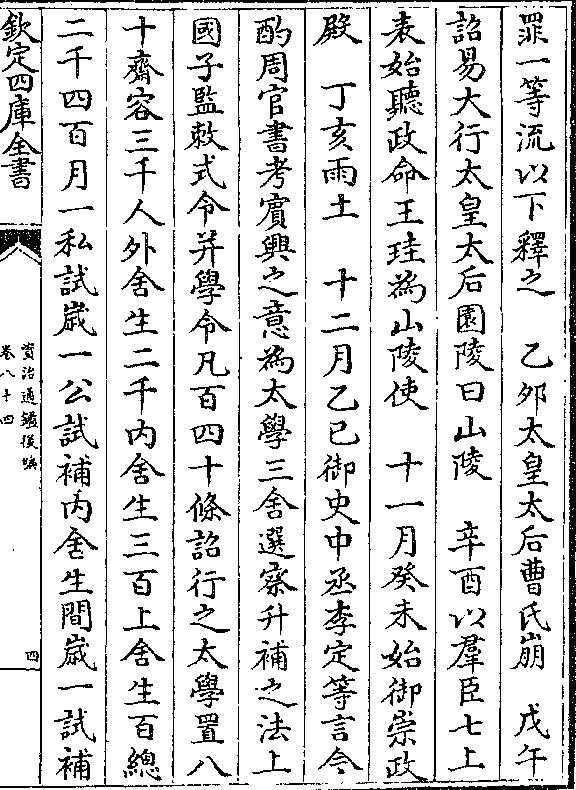 罪一等流以下釋之　乙夘太皇太后曹氏崩　戊午
詔易大行太皇太后園陵曰山陵　辛酉以羣臣七上
表始聽政命王珪為山陵使　十一月癸未始御崇政
殿　丁亥雨土　十二月乙巳御史中丞李定等言今
酌周官書考賓興之意為太學三舍選察升補之法上
國子監敕式令并學令凡百四十條詔行之太學置八
十齋容三千人外舍生二千內舍生三百上舍生百總
二千四百月一私試歲一公試補內舍生間歲一試補
欽定四庫全書
資治通鑑後編
卷八十四
四